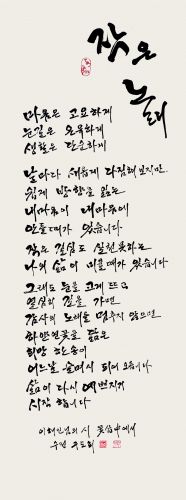 작은
노래
마음은 고요하게
눈길은 온유하게
생활은 단순하게
날마다 새롭게 다짐해 보지만
쉽게 방향을 잃는
내마음이 내마음에
안들때가 있습니다
작은 결심도 실천 못하는
나의 삶이 미울때가 있습니다
그래도 눈을 크게 뜨고
열심히 길을 가면
감사의 노래를 멈추지 않으면
하얀연꽃을 닮은
희망 한송이
어느날 슬며시 피어 오릅니다
삶이 다시 예뻐지기
시작 합니다
이해인님의 시 중에서